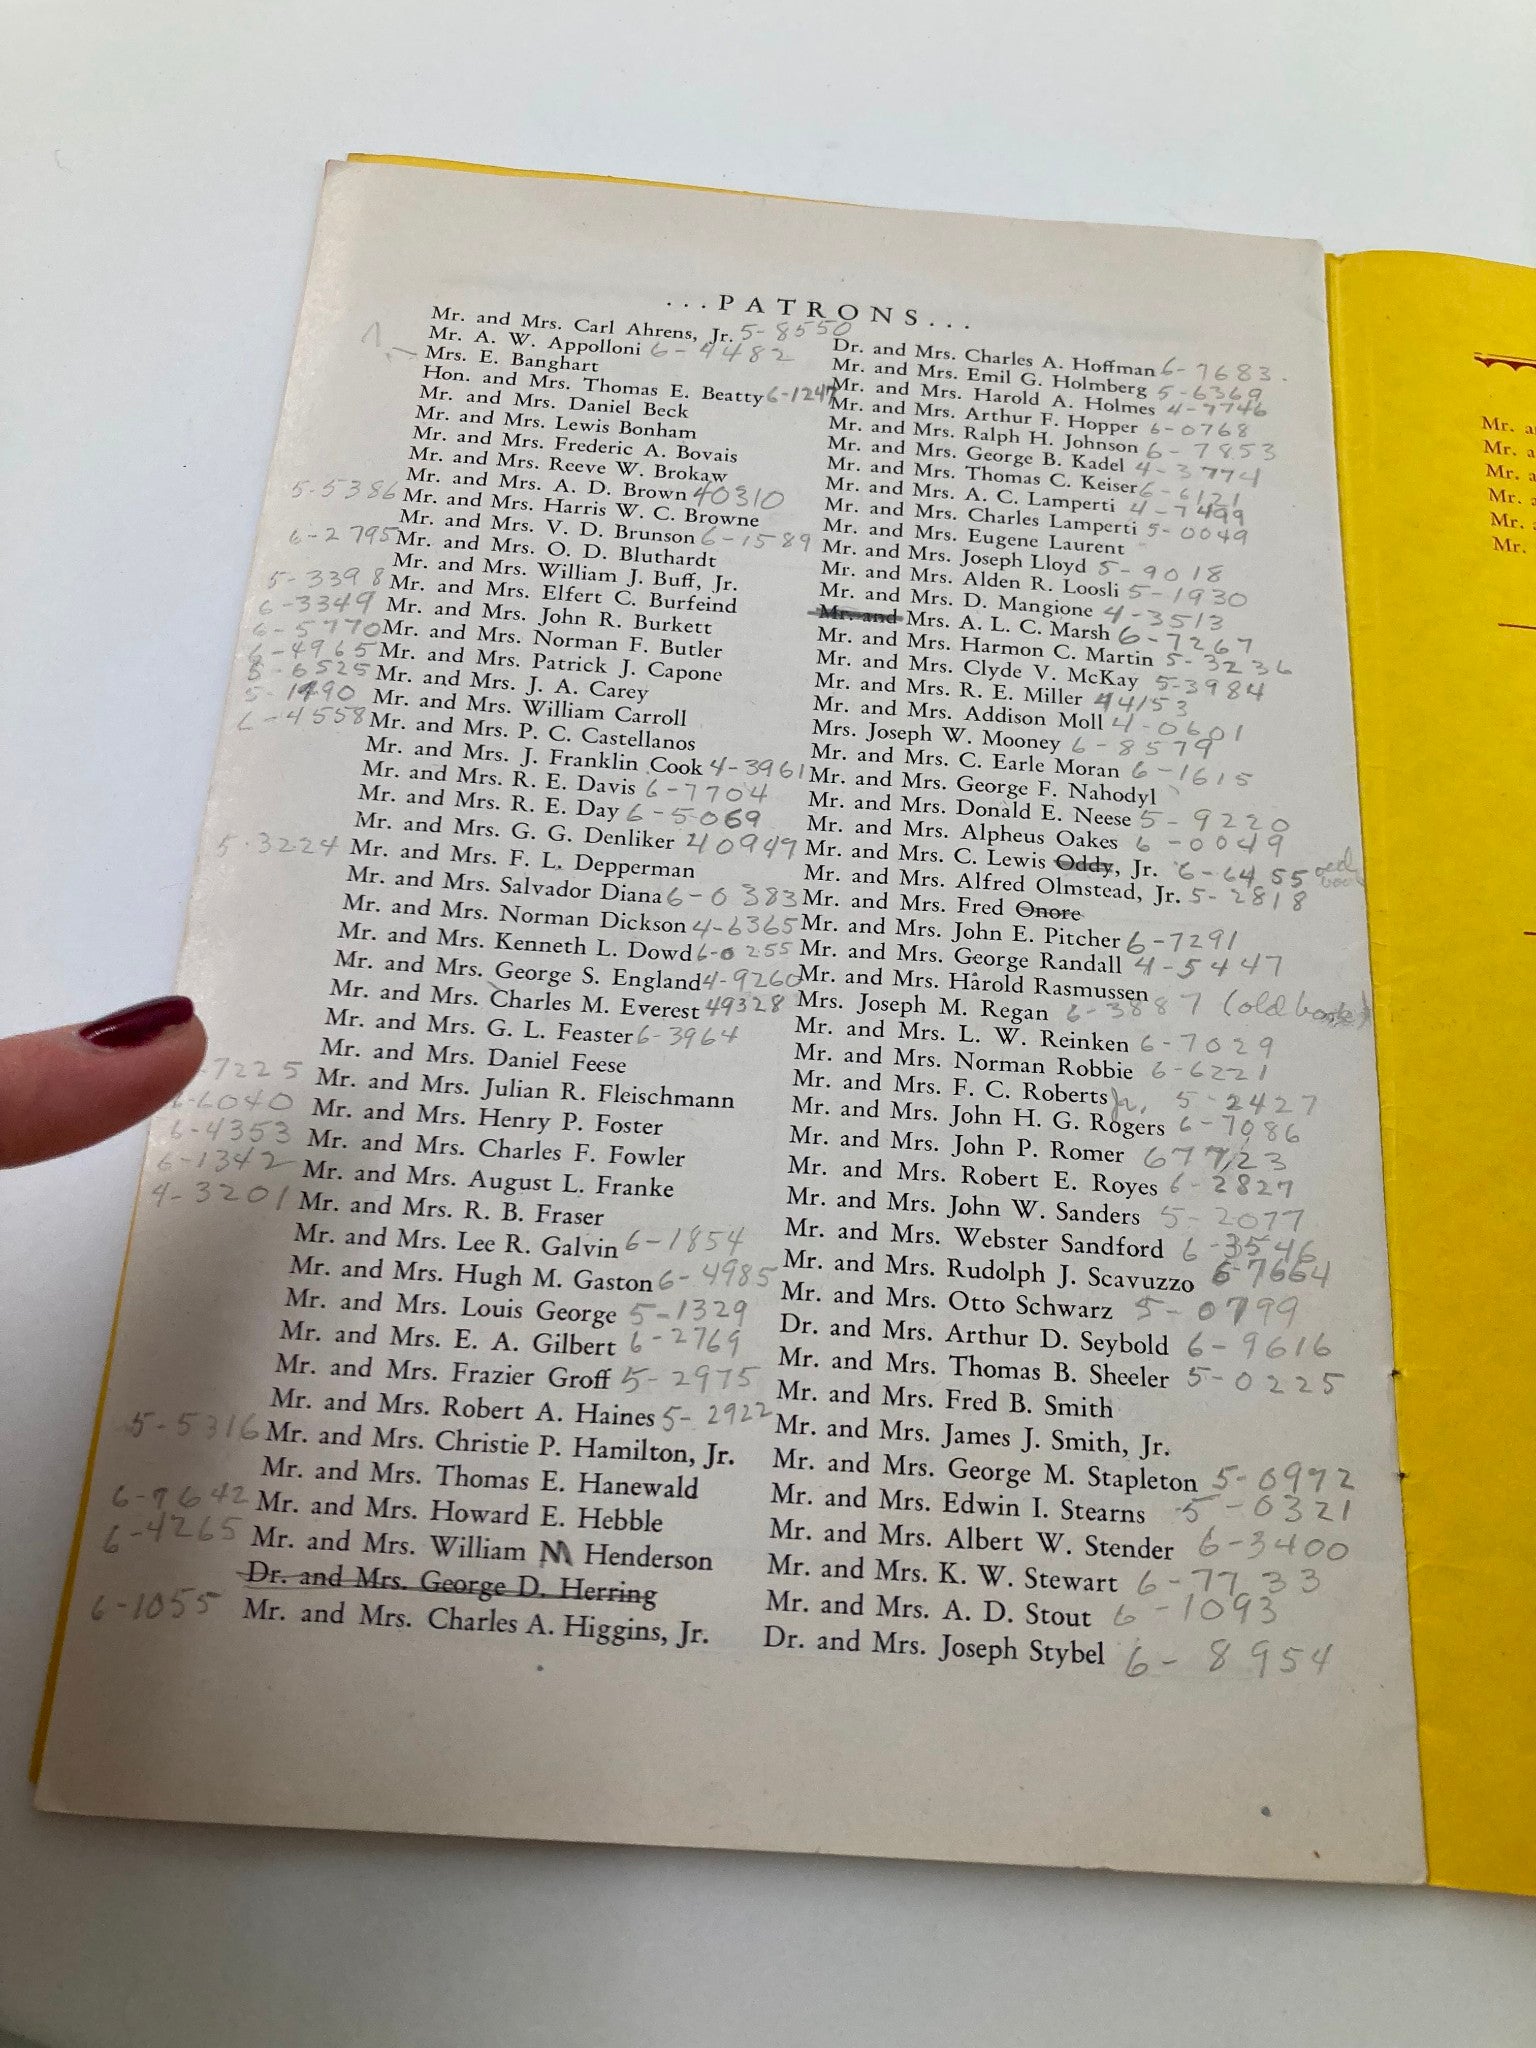 ...PATRONS...
Mr. and Mrs. Carl Ahrens, Jr. 5-8550
Mr. A. W. Appolloni 6-4482
Mrs. E. Banghart
Hon. and Mrs. Thomas E. Beatty 6-1247
Mr. and Mrs. Daniel Beck
Mr. and Mrs. Lewis Bonham
Mr. and Mrs. Frederic A. Bovais
Mr. and Mrs. Reeve W. Brokaw
Mr. and Mrs. A. D. Brown 40310
5-5386 Mr. and Mrs. Harris W. C. Browne
Mr. and Mrs. V. D. Brunson 6-1589
6-2795 Mr. and Mrs. O. D. Bluthardt
Mr. and Mrs. William J. Buff, Jr.
5-3398 Mr. and Mrs. Elfert C. Burfeind
6-3349 Mr. and Mrs. John R. Burkett
6-5770 Mr. and Mrs. Norman F. Butler
6-4965 Mr. and Mrs. Patrick J. Capone
8-6525 Mr. and Mrs. J. A. Carey
5-1490 Mr. and Mrs. William Carroll
6-4558 Mr. and Mrs. P. C. Castellanos
Mr. and Mrs. J. Franklin Cook 4-3961
Mr. and Mrs. R. E. Davis 6-7704
Mr. and Mrs. R. E. Day 6-5069
Mr. and Mrs. G. G. Denliker 40949
5-3224 Mr. and Mrs. F. L. Depperman
Mr. and Mrs. Salvador Diana 6-0383
Mr. and Mrs. Norman Dickson 4-6365
Mr. and Mrs. Kenneth L. Dowd 6-0255
Mr. and Mrs. George S. England 4-9260
Mr. and Mrs. Charles M. Everest 49328
Mr. and Mrs. G. L. Feaster 6-3964
Mr. and Mrs. Daniel Feese
-7225 Mr. and Mrs. Julian R. Fleischmann
6-6040 Mr. and Mrs. Henry P. Foster
6-4353 Mr. and Mrs. Charles F. Fowler
6-1342 Mr. and Mrs. August L. Franke
4-3201 Mr. and Mrs. R. B. Fraser
Mr. and Mrs. Lee R. Galvin 6-1854
Mr. and Mrs. Hugh M. Gaston 6-4985
Mr. and Mrs. Louis George 5-1329
Mr. and Mrs. E. A. Gilbert 6-2769
Mr. and Mrs. Frazier Groff 5-2975
Mr. and Mrs. Robert A. Haines 5-2922
5-5316 Mr. and Mrs. Christie P. Hamilton, Jr.
Mr. and Mrs. Thomas E. Hanewald
6-9642 Mr. and Mrs. Howard E. Hebble
6-4265 Mr. and Mrs. William M Henderson
Dr. and Mrs. George D. Herring
6-1055 Mr. and Mrs. Charles A. Higgins, Jr.
Dr. and Mrs. Charles A. Hoffman 6-7683
Mr. and Mrs. Emil G. Holmberg 5-6369
Mr. and Mrs. Harold A. Holmes 4-7746
Mr. and Mrs. Arthur F. Hopper 6-0768
Mr. and Mrs. Ralph H. Johnson 6-7853
Mr. and Mrs. George B. Kadel 4-3774
Mr. and Mrs. Thomas C. Keiser 6-6121
Mr. and Mrs. A. C. Lamperti 4-7499
Mr. and Mrs. Charles Lamperti 5-0049
Mr. and Mrs. Eugene Laurent
Mr. and Mrs. Joseph Lloyd 5-9018
Mr. and Mrs. Alden R. Loosli 5-1930
Mr. and Mrs. D. Mangione 4-3513
Mr. and Mrs. A. L. C. Marsh 6-7267
Mr. and Mrs. Harmon C. Martin 5-3236
Mr. and Mrs. Clyde V. McKay 5-3984
Mr. and Mrs. R. E. Miller 44153
Mr. and Mrs. Addison Moll 4-0601
Mrs. Joseph W. Mooney 6-8579
Mr. and Mrs. C. Earle Moran 6-1615
Mr. and Mrs. George F. Nahodyl
Mr. and Mrs. Donald E. Neese 5-9220
Mr. and Mrs. Alpheus Oakes 6-0049
Mr. and Mrs. C. Lewis Oddy, Jr. 6-6455 old book
Mr. and Mrs. Alfred Olmstead, Jr. 5-2818
Mr. and Mrs. Fred Onore
Mr. and Mrs. John E. Pitcher 6-7291
Mr. and Mrs. George Randall 4-5447
Mr. and Mrs. Harold Rasmussen
Mrs. Joseph M. Regan 6-3887 (old book)
Mr. and Mrs. L. W. Reinken 6-7029
Mr. and Mrs. Norman Robbie 6-6221
Mr. and Mrs. F. C. Roberts Jr. 5-2427
Mr. and Mrs. John H. G. Rogers 6-7086
Mr. and Mrs. John P. Romer 67723
Mr. and Mrs. Robert E. Royes 6-2827
Mr. and Mrs. John W. Sanders 5-2077
Mr. and Mrs. Webster Sandford 6-3546
Mr. and Mrs. Rudolph J. Scavuzzo 6-7664
Mr. and Mrs. Otto Schwarz 5-0799
Dr. and Mrs. Arthur D. Seybold 6-9616
Mr. and Mrs. Thomas B. Sheeler 5-0225
Mr. and Mrs. Fred B. Smith
Mr. and Mrs. James J. Smith, Jr.
Mr. and Mrs. George M. Stapleton 5-0972
Mr. and Mrs. Edwin I. Stearns 5-0321
Mr. and Mrs. Albert W. Stender 6-3400
Mr. and Mrs. K. W. Stewart 6-7733
Mr. and Mrs. A. D. Stout 6-1093
Dr. and Mrs. Joseph Stybel 6-8954
Mr. a
Mr.
Mr.
Mr.
Mr.
Mr.